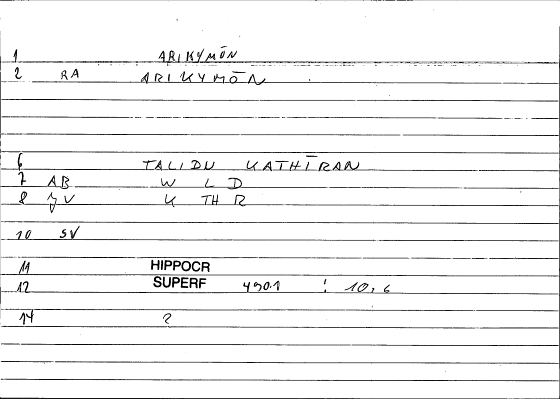 1 ARIKYMŌN
2 RA ARIKYMŌN
6 TALIDU KATHĪRAN
7 AB W L D
8 K TH R
10 SV
11 HIPPOCR
12 SUPERF 4901 : 10,6
14 ?